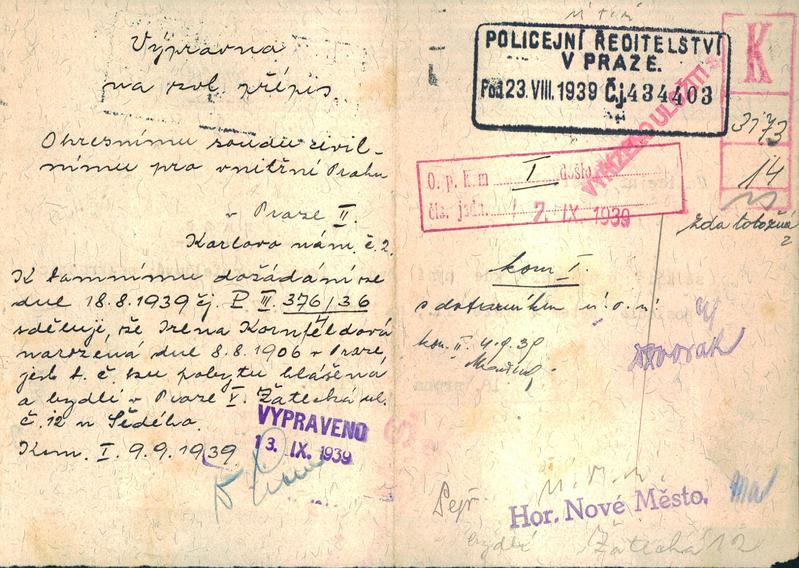 Výpravna
na rub. přípis.
Okresnímu soudu civil-
nímu pro vnitřní Prahu
v Praze II.
Karlovo nám. č. 2.
K tamnímu dožádání ze
dne 18.8.1939 čj. P III. 376/36
sděluji, že Irena Kornfeldová
narozená dne 8.8.1906 v Praze,
jest t. č. ku pobytu hlášena
a bydlí v Praze V. Žatecká ul.
č. 12 u Šedého.
Kom. I. 9.9.1939.
VYPRAVENO
13. IX. 1939
POLICEJNÍ ŘEDITELSTVÍ
V PRAZE.
Pod. 23. VIII. 1939 Čj. 434403
K
3173
14
O. p. k. m I došlo
čís. jedn. 7. IX. 1939
zda totožná
?
kom I.
s dotazníkem
kom. II. 4.9.39
Dvorak
Hor. Nové Město.
bydlí Žatecká 12